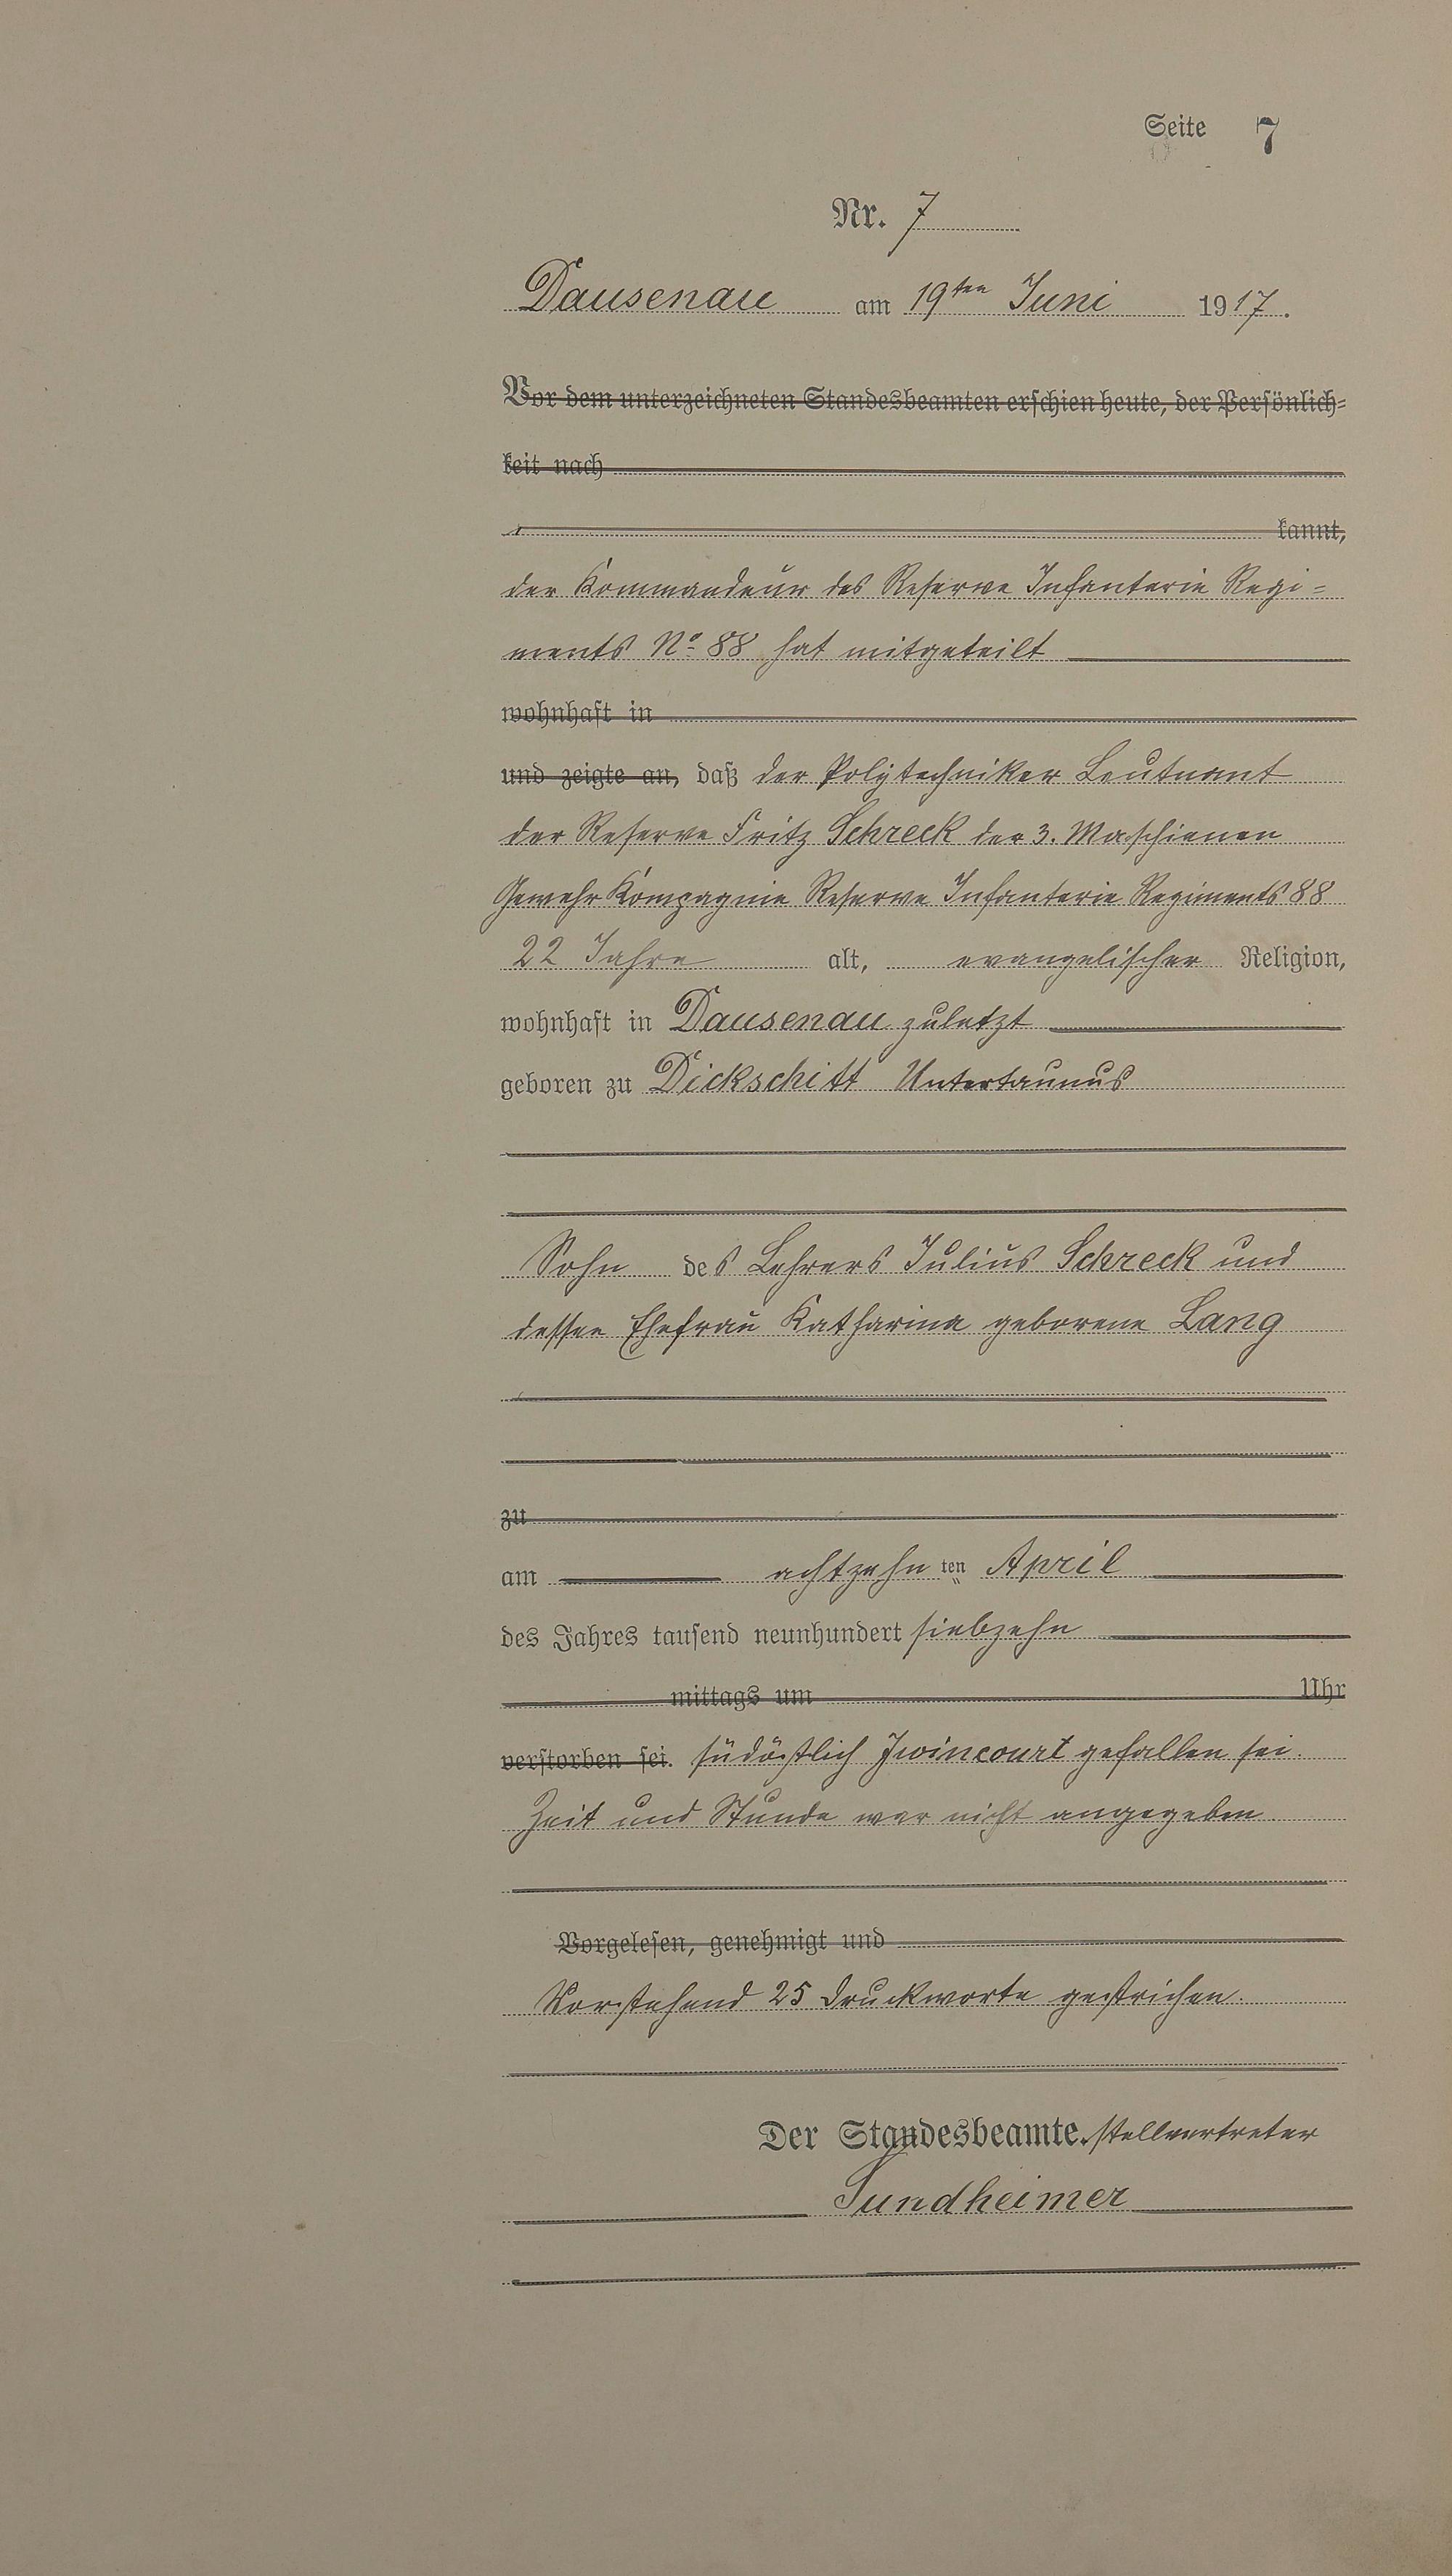 Seite 7
Nr. 7
Dausenau am 19ten Juni 1917.
Vor dem unterzeichneten Standesbeamten erschien heute, der Persönlich-
keit nach
kannt,
der Kommandeur des Reserve Infanterie Regi-
ments No 88 hat mitgeteilt
wohnhaft in
und zeigte an, daß der Polytechniker Leutnant
der Reserve Fritz Schreck der 3. Maschienen
Gewehr Kompagnie Reserve Infanterie Regiments 88
22 Jahre alt, evangelischer Religion,
wohnhaft in Dausenau zuletzt
geboren zu Dickschitt Untertaunus
Sohn des Lehrers Julius Schreck und
dessen Ehefrau Katharina geborene Lang
zu
am achtzehn ten April
des Jahres tausend neunhundert siebzehn
mittags um Uhr
verstorben sei. südöstlich Juvincourt gefallen sei.
Zeit und Stunde war nicht angegeben.
Vorgelesen, genehmigt und
Vorstehend 25 Druckworte gestrichen.
Der Standesbeamte. stellvertreter
Sundheimer